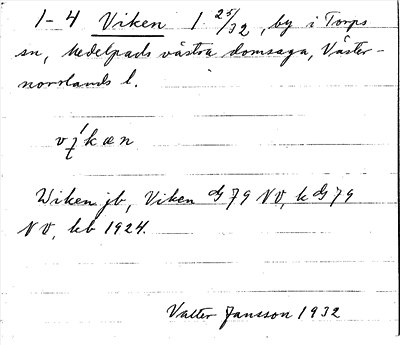 1-4 Viken 1 25/32, by i Torps
sn, Medelpads västra domsaga, Väster-
norrlands l.
víkæn
Wiken jb, Viken dG79 NV, k dG79
NV, kb 1924.
Valter Jansson 1932